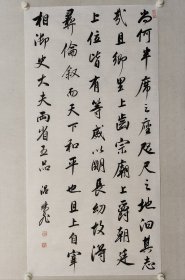 尚何半席之座咫尺之地汩其志
哉且乡里上齿宗庙上爵朝廷
上位皆有等威以明长幼故得
彝伦叙而天下和平也且上自宰
相御史大夫两省五品